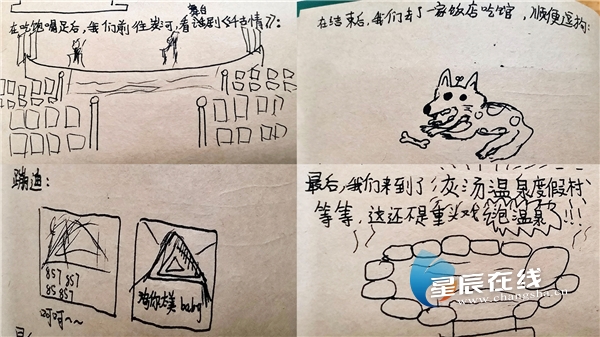 舞台
在吃饱喝足后，我们前往炭河，看剧《千古情》：
在结束后，我们去了一家饭店吃馆，顺便逗狗：
蹦迪：
857 857
85 857
呵呵~~
你太美 baby
最后，我们来到了灰汤温泉度假村
等等，这还不是重头戏 泡温泉!!!
星辰在线
www.changsha.cn